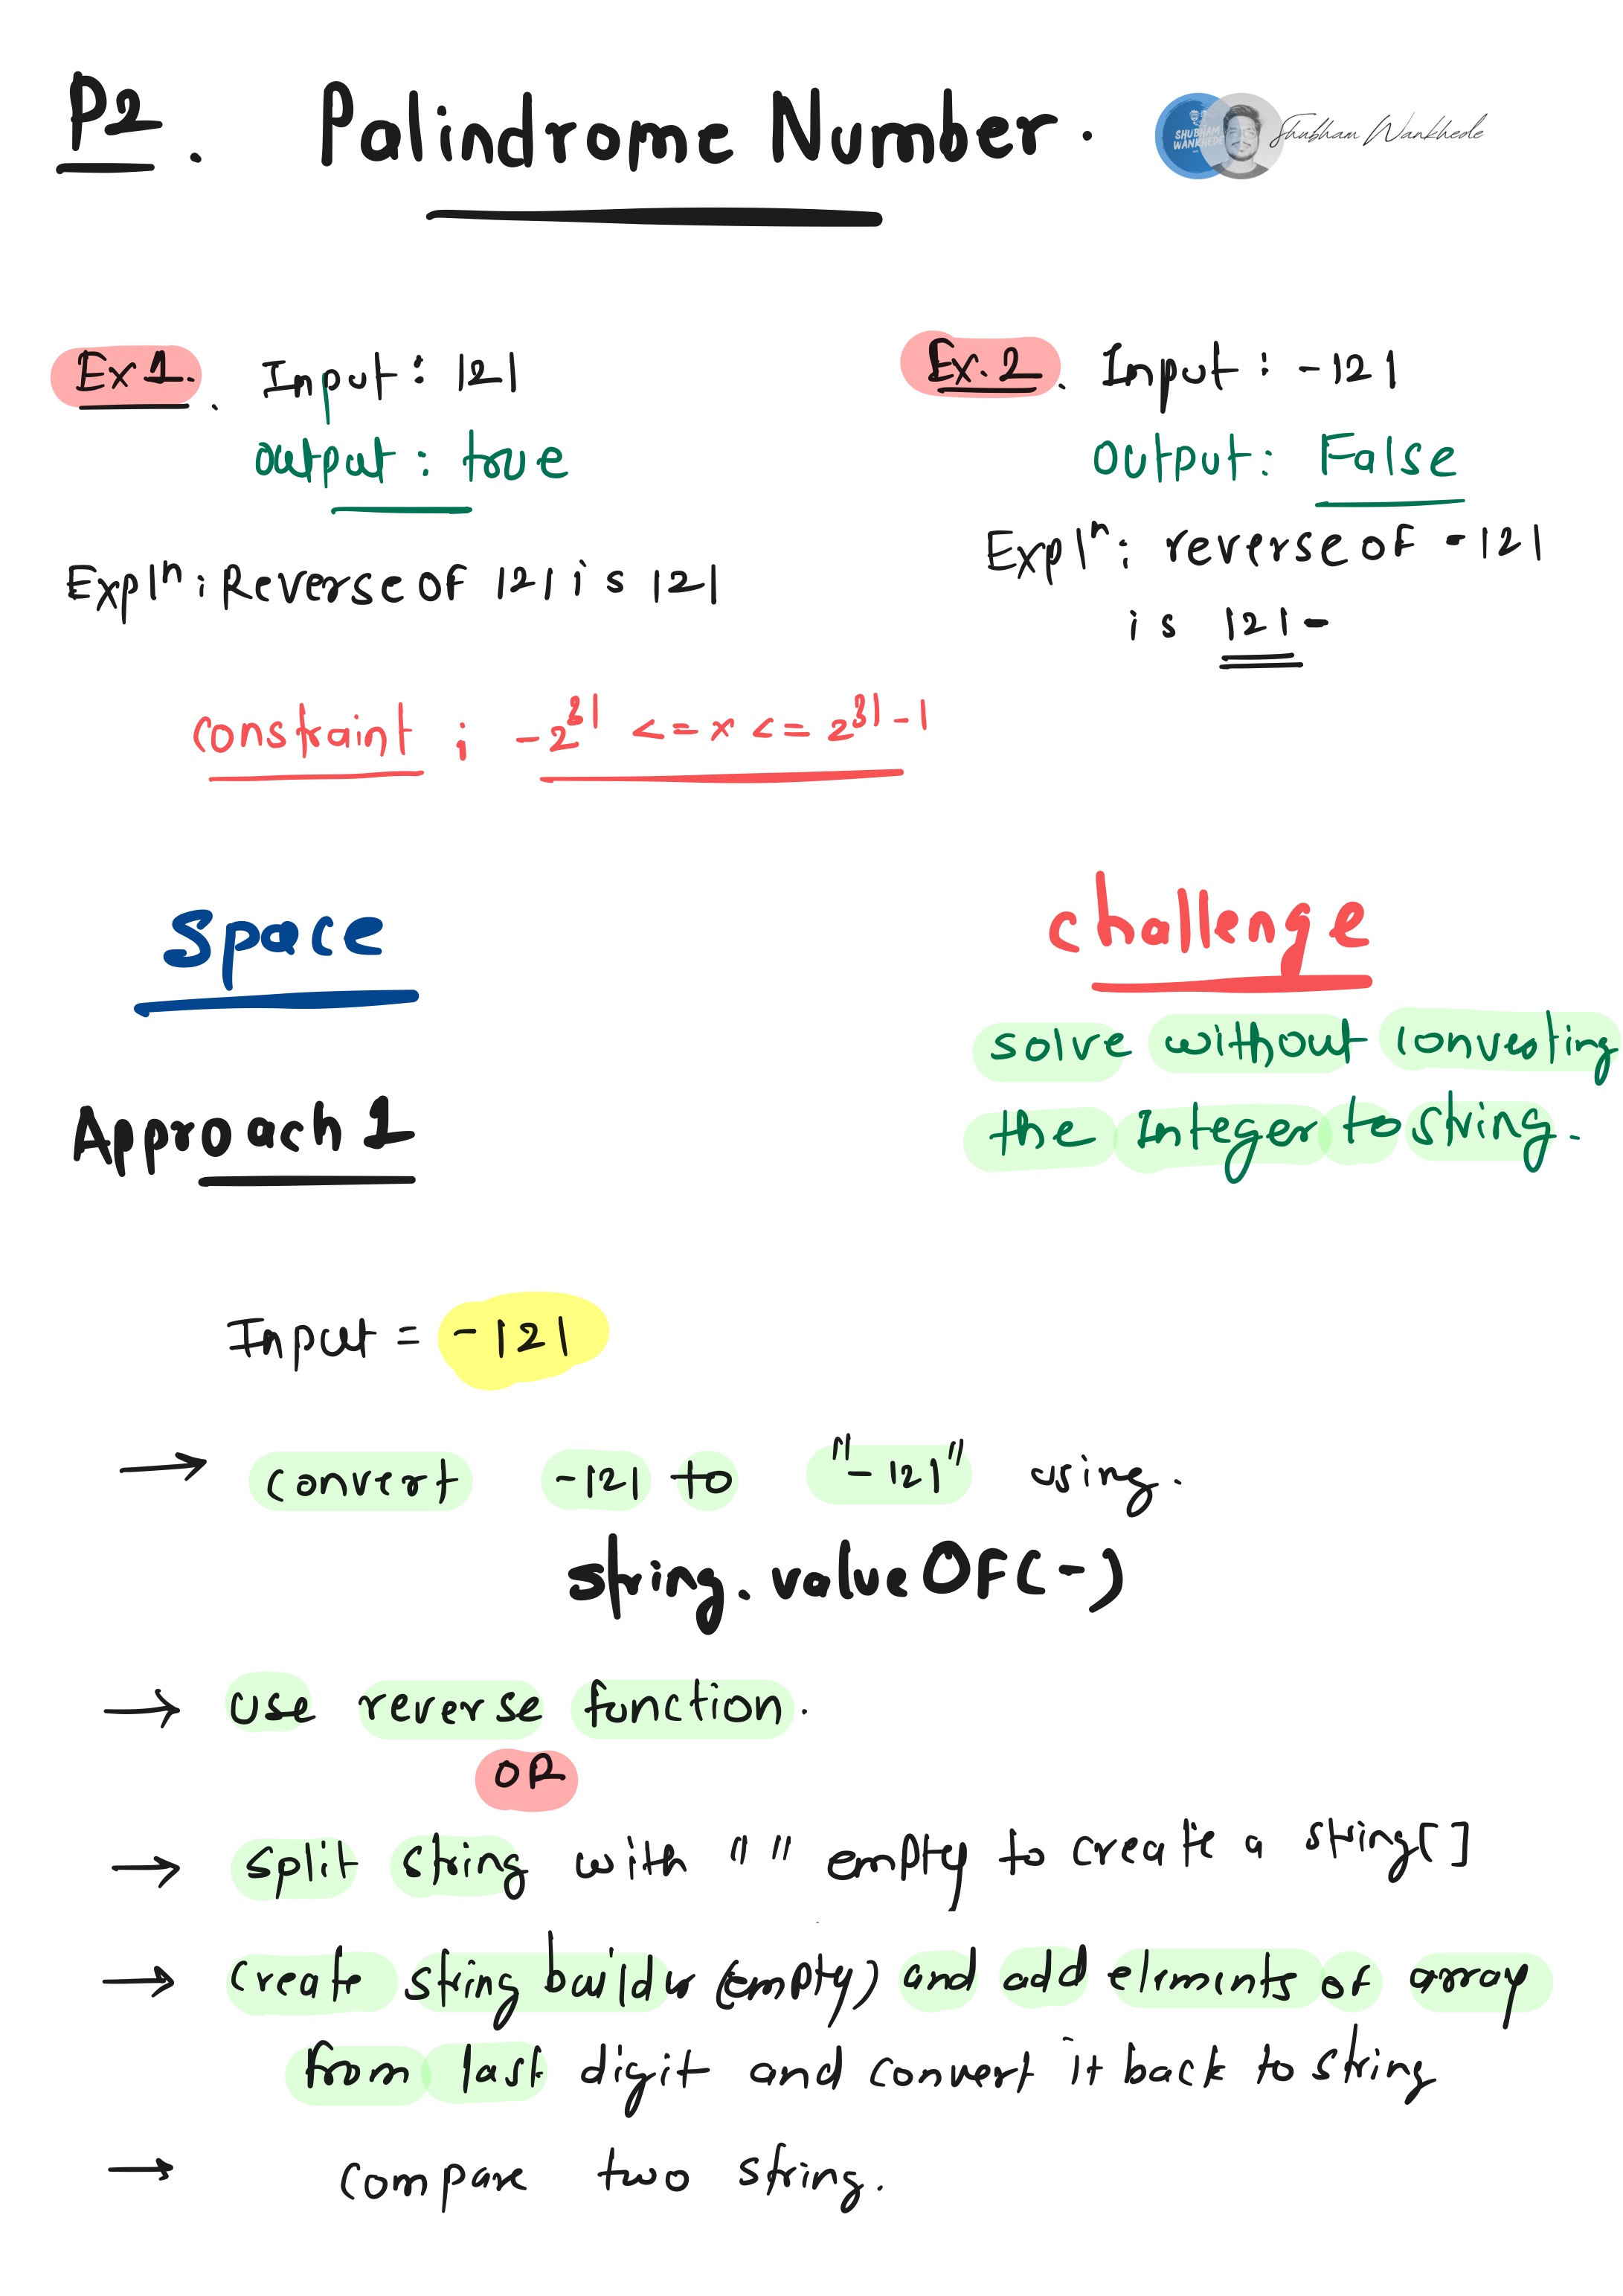 P2. Palindrome Number.
SHUBHAM
WANKHEDE
Shubham Wankhede
Ex 1. Input : 121
output : true
Explⁿ : Reverse of 121 is 121
Ex. 2. Input : -121
output : False
Explⁿ : reverse of -121
is 121-
constraint ; -2³¹ <= x <= 2³¹-1
space
challenge
solve without converting
the Integer to string.
Approach 1
Input = -121
→ convert -121 to "-121" using.
string.valueOf(-)
→ use reverse function.
OR
→ split string with "" empty to create a string[]
→ create string builder (empty) and add elements of array
from last digit and convert it back to string
→ compare two string.